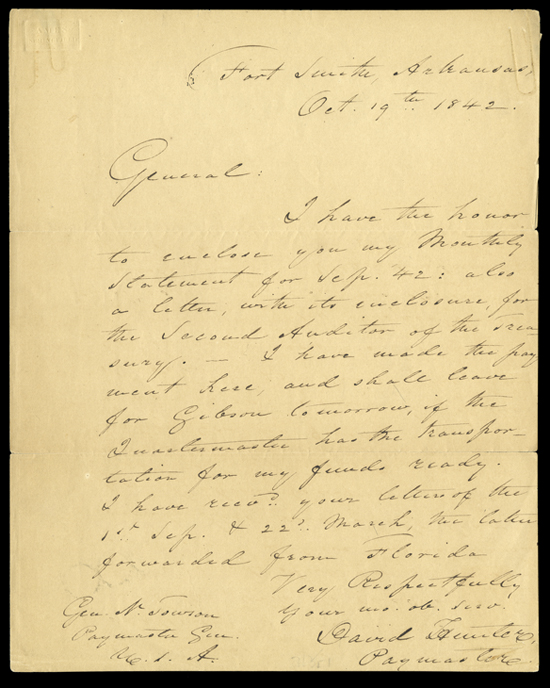 Fort Smith, Arkansas,
Oct. 19th 1842.
General:
I have the honor
to enclose you my Monthly
Statement for Sep. 42: also
a letter, with its enclosure, for
the Second Auditor of the Trea
sury. — I have made the pay
ment here, and shall leave
for Gibson tomorrow, if the
Quartermaster has the transpor-
tation for my funds ready.
I have recvd. your letters of the
1st Sep. & 22d. March, the latter
forwarded from Florida
Very Respectfully
Your mo. ob. serv.
David Hunter,
Paymaster.
Gen. N. Towson
Paymaster Gen.
U. S. A.